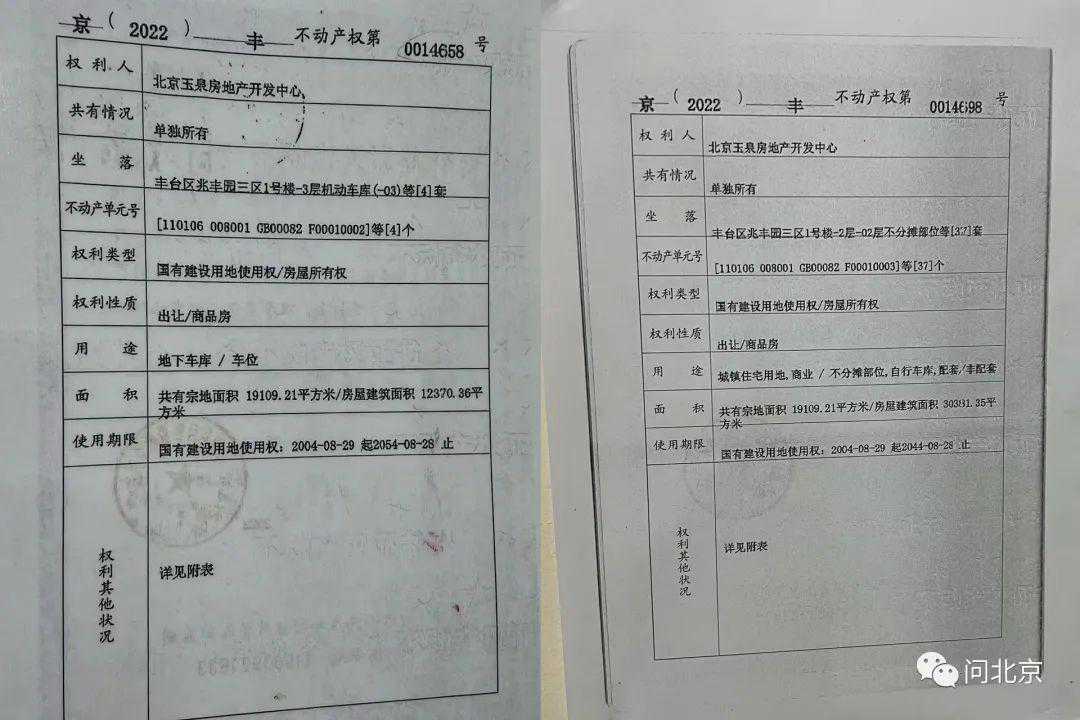 京 ( 2022 ) 丰 不动产权第 0014658 号
权利人 北京玉泉房地产开发中心
共有情况 单独所有
坐落 丰台区兆丰园三区1号楼-3层机动车库(-03)等[4]套
不动产单元号 [110106 008001 GB00082 F00010002]等[4]个
权利类型 国有建设用地使用权/房屋所有权
权利性质 出让/商品房
用途 地下车库 / 车位
面积 共有宗地面积 19109.21平方米/房屋建筑面积 12370.36平
方米
使用期限 国有建设用地使用权: 2004-08-29 起2054-08-28 止
权利其他状况 详见附表
京 ( 2022 ) 丰 不动产权第 0014698 号
权利人 北京玉泉房地产开发中心
共有情况 单独所有
坐落 丰台区兆丰园三区1号楼-2层-02层不分摊部位等[37]套
不动产单元号 [110106 008001 GB00082 F00010003]等[37]个
权利类型 国有建设用地使用权/房屋所有权
权利性质 出让/商品房
用途 城镇住宅用地,商业 / 不分摊部位,自行车库,配套/非配套
面积 共有宗地面积 19109.21平方米/房屋建筑面积 30381.35平
方米
使用期限 国有建设用地使用权: 2004-08-29 起2044-08-28 止
权利其他状况 详见附表
问北京